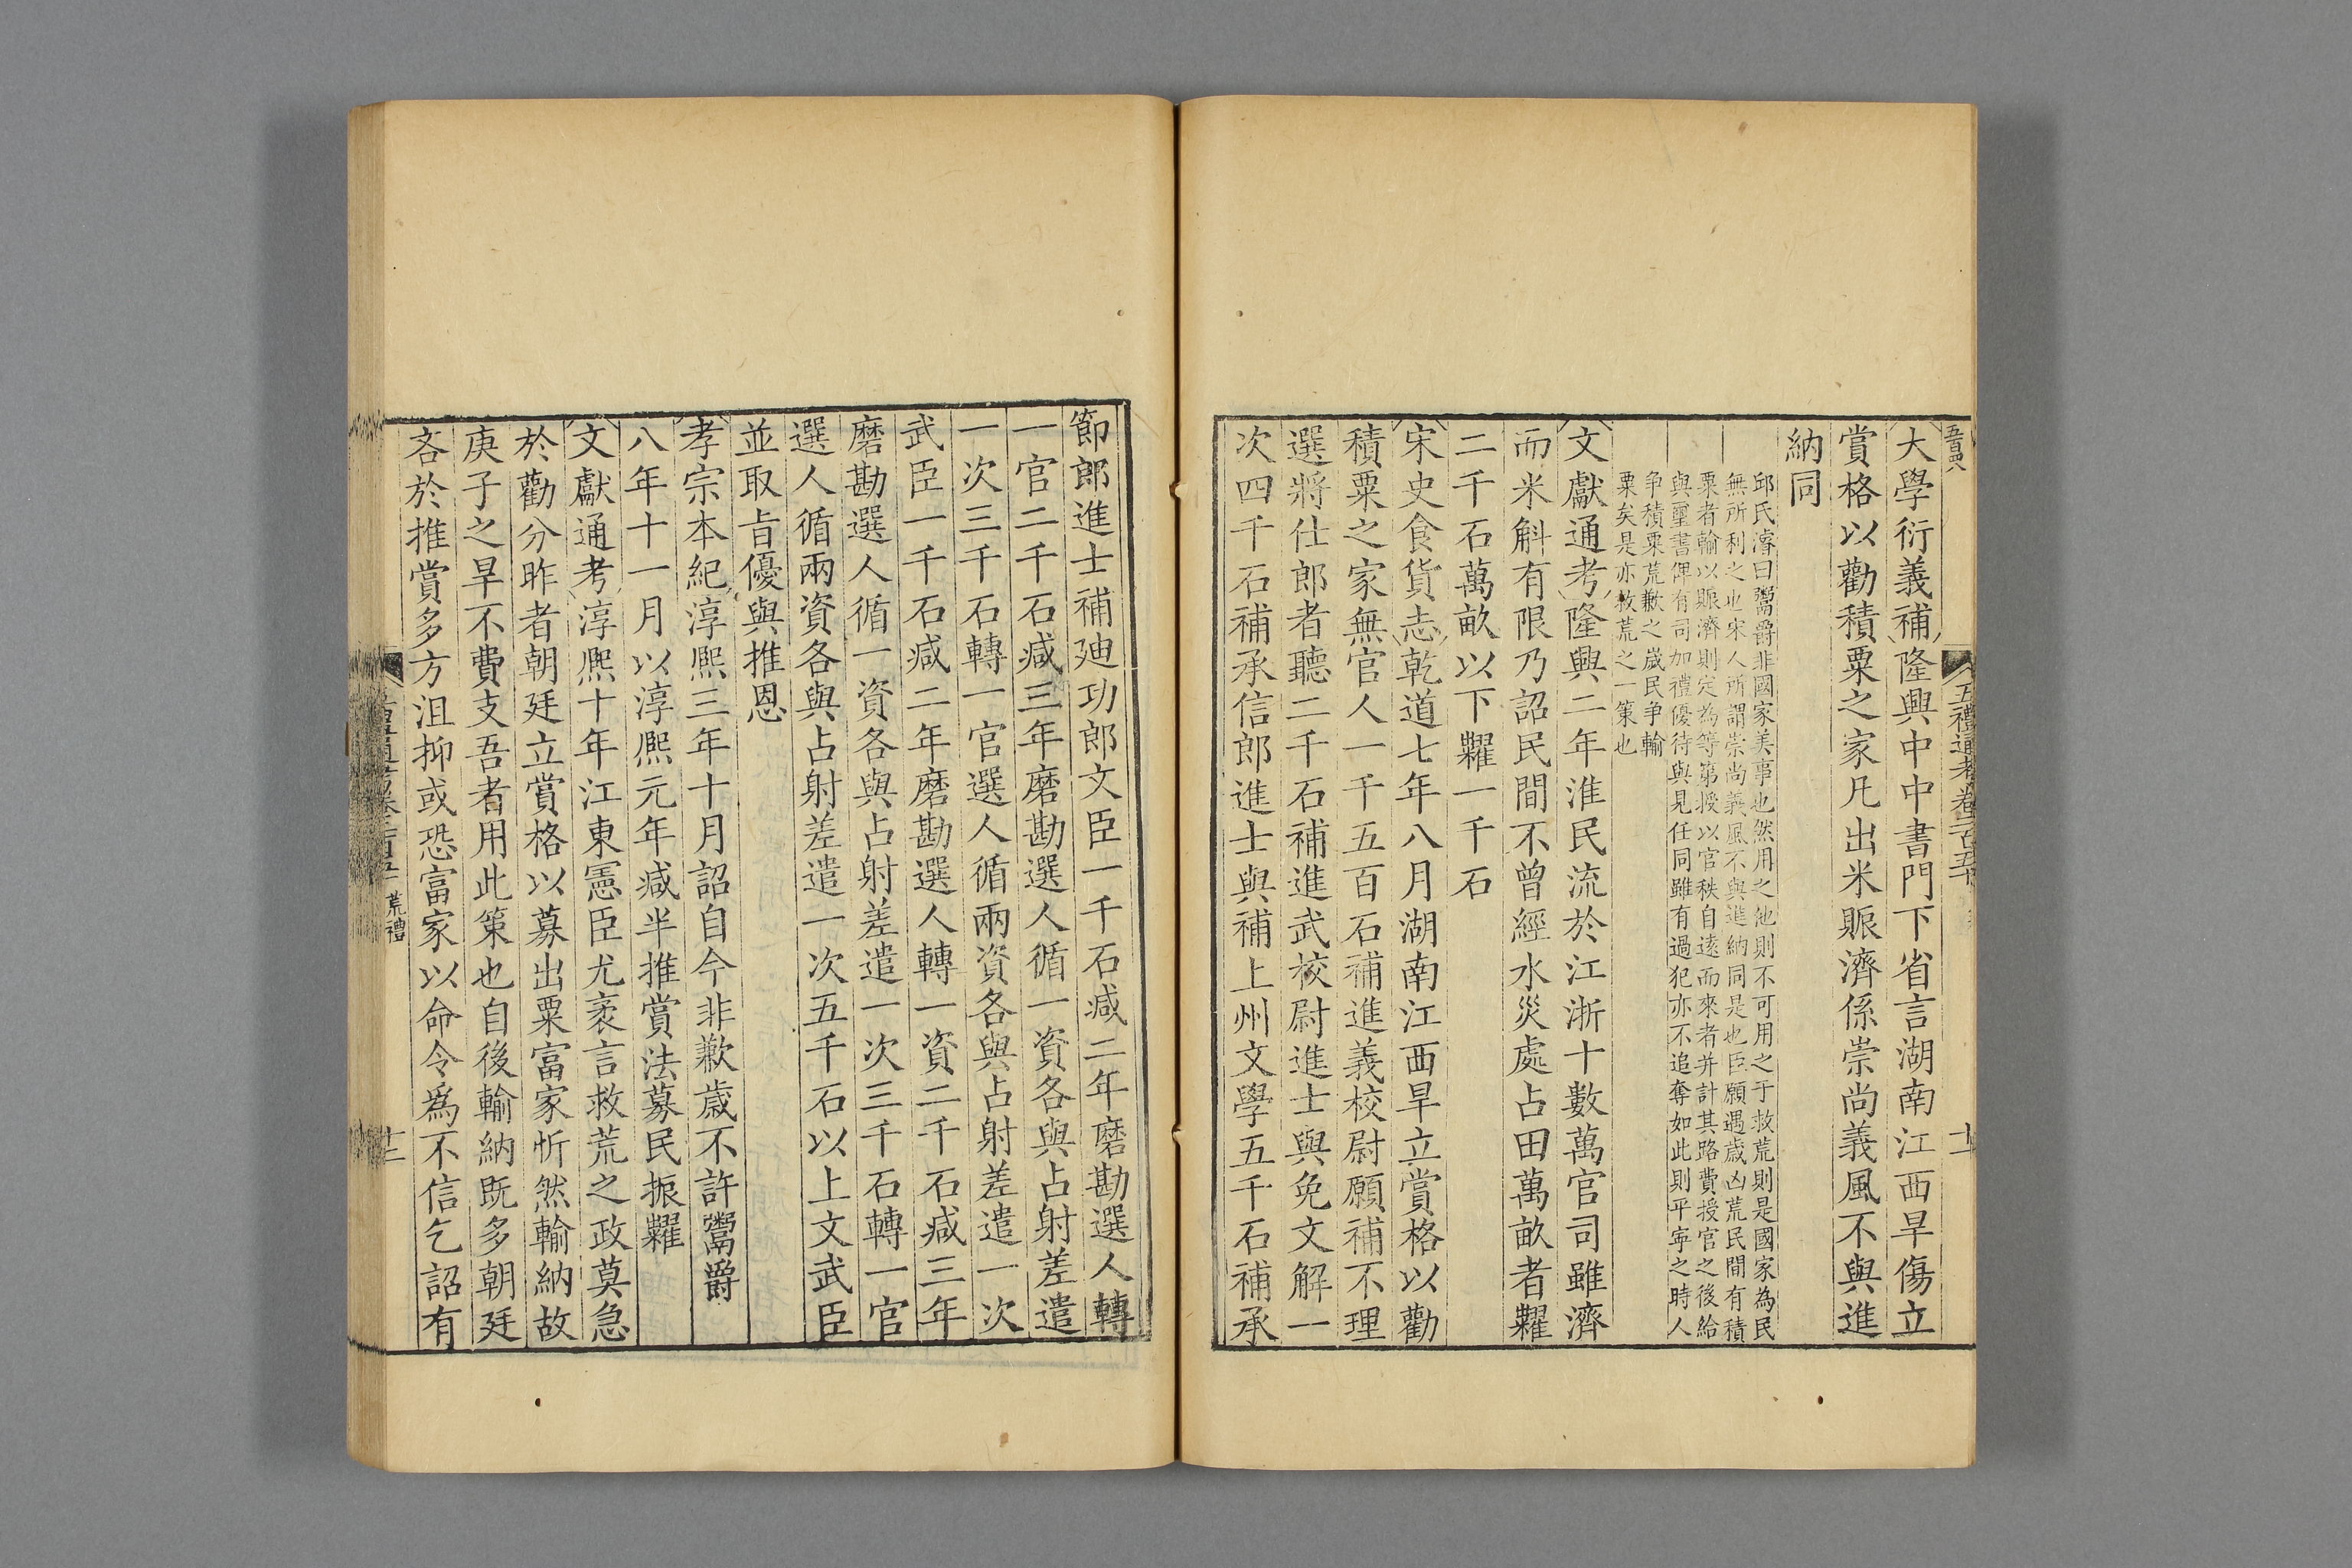 大學衍義補隆興中中書門下省言湖南江西旱傷立
賞格以勸積粟之家凡出米賑濟係崇尚義風不與進
納同
邱氏濬曰鬻爵非國家美事也然用之他則不可用之于救荒則是國家為民
無所利之也宋人所謂崇尚義風不與進納同是也臣願遇歲凶荒民間有積
粟者輸以賑濟則定為等第授以官秩自遠而來者并計其路費授官之後給
與璽書俾有司加禮優待與見任同雖有過犯亦不追奪如此則平寧之時人
争積粟荒歉之歲民争輸
粟矣是亦救荒之一策也
文獻通考隆興二年淮民流於江浙十數萬官司雖濟
而米斛有限乃詔民間不曾經水災處占田萬畝者糶
二千石萬畝以下糶一千石
宋史食貨志乾道七年八月湖南江西旱立賞格以勸
積粟之家無官人一千五百石補進義校尉願補不理
選將仕郎者聽二千石補進武校尉進士與免文解一
次四千石補承信郎進士與補上州文學五千石補承
節郎進士補廸功郎文臣一千石減二年磨勘選人轉
一官二千石減三年磨勘選人循一資各與占射差遣
一次三千石轉一官選人循兩資各與占射差遣一次
武臣一千石減二年磨勘選人轉一資二千石減三年
磨勘選人循一資各與占射差遣一次三千石轉一官
選人循兩資各與占射差遣一次五千石以上文武臣
並取旨優與推恩
孝宗本紀淳熙三年十月詔自今非歉歲不許鬻爵
八年十一月以淳熙元年減半推賞法募民振糶
文獻通考淳熙十年江東憲臣尤袤言救荒之政莫急
於勸分昨者朝廷立賞格以募出粟富家忻然輸納故
庚子之旱不費支吾者用此策也自後輸納既多朝廷
吝於推賞多方沮抑或恐富家以命令為不信乞詔有
荒禮